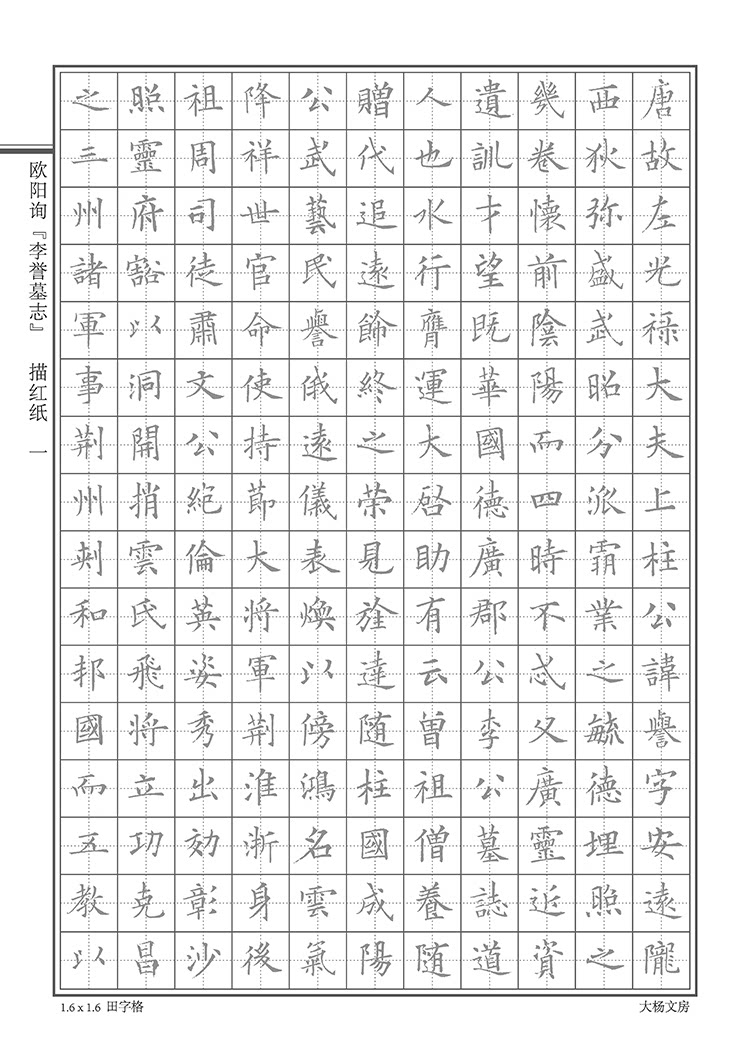 唐故左光禄大夫上柱公諱譽字安遠隴
西狄弥盛武昭分派霸業之毓德埋照之
幾卷懷前陰陽而四時不忒父廣靈近資
遺訓才望既華國德廣郡公李公墓誌道
人也水行膺運大啓助有云曾祖僧養随
贈代追遠飾終之荣見旌達随柱國成陽
公武藝民譽俄遠儀表煥以傍鴻名雲氣
降祥世官命使持節大将軍荆淮浙身後
祖周司徒肅文公絕倫英姿秀出効彰沙
照靈府豁以洞開捎雲氏飛将立功克昌
之三州諸軍事荆州刾和邦國而五教以
欧阳询『李誉墓志』 描红纸 一
1.6 x 1.6 田字格
大杨文房